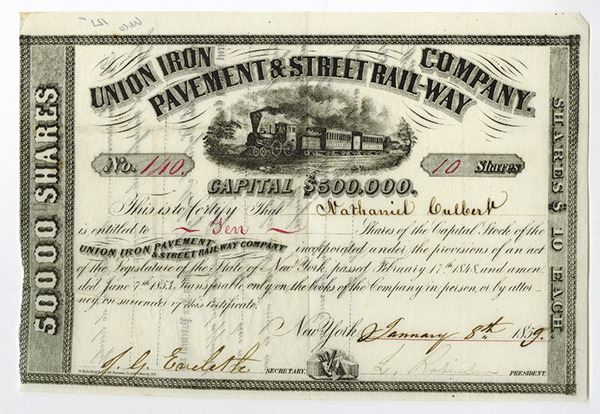 UNION IRON COMPANY.
PAVEMENT & STREET RAIL-WAY
50000 SHARES
SHARES $10 EACH.
No. 140.
10 Shares
CAPITAL $500.000.
This is to certify That Nathaniel Culbert
is entitled to ~ Ten ~ Shares of the Capital Stock of the
UNION IRON PAVEMENT, & STREET RAILWAY COMPANY incorporated under the provisions of an act
of the Legislature of the State of New York, passed February 17th 1848, and amen
ded June 7th 1853. Transferable only on the books of the Company in person or by attor
ney, on surrender of this Certificate.
New York January 8th 1859.
SECRETARY.
PRESIDENT.